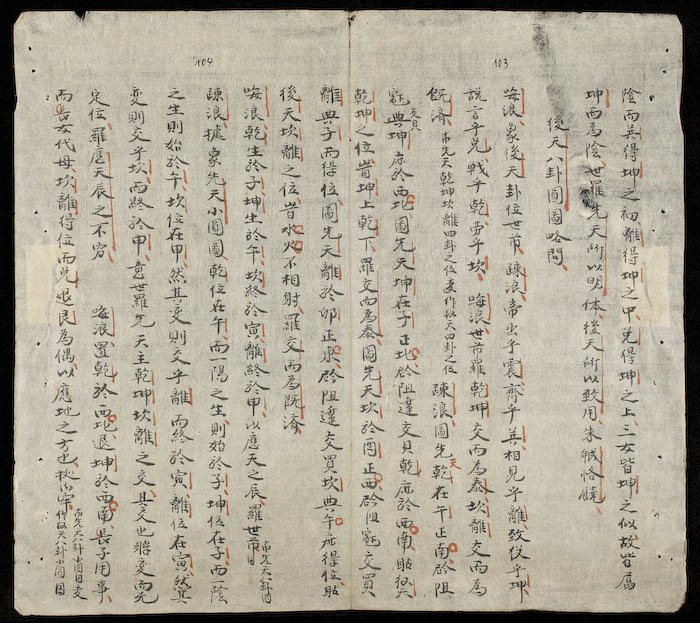 103
陰而巽得坤之初離得坤之中兌得坤之上三女皆坤之似故皆屬
坤而為陰世羅先天所以明体後天所以致用朱 恪饒
後天八卦圓圖略問
㖼浪象後天卦位世市踈浪帝出乎震齊乎巽相見乎離致役乎坤
說言乎兌戰乎乾勞乎坎㖼浪世市羅乾坤交而為泰坎離交而為
既濟 先天乾坤坎離四卦之位 後天四卦之位 踈浪圖先天乾在午正南 阻
典坤 於西北圖先天坤在子正北 阻違交貝乾 於西南
乾坤之位皆坤上乾下羅交而為泰圖先天坎於酉正西 阻 交買
104
離典子而得位圖先天離於卯正東 阻違交買坎典午 得位
後天坎離之位皆水火不相射羅交而為既濟
㖼浪乾生於子坤生於午坎終於寅離終於申以應天之辰羅世市 先天八卦圖
踈浪據象先天小圓圖乾位在午而一陽之生則始於子坤位在子而一陰
之生則始於午坎位在申然其變則交乎離而終於寅離位在寅然其
變則交乎坎而終於申 世羅先天主乾坤坎離之交其交也將變而无
定位羅應天辰之不窮 㖼浪置乾於西北退坤於西南長子用事
而長女代母坎離得位而兌退艮為偶以應地之方也 先天八卦小圖 後天八卦小圖